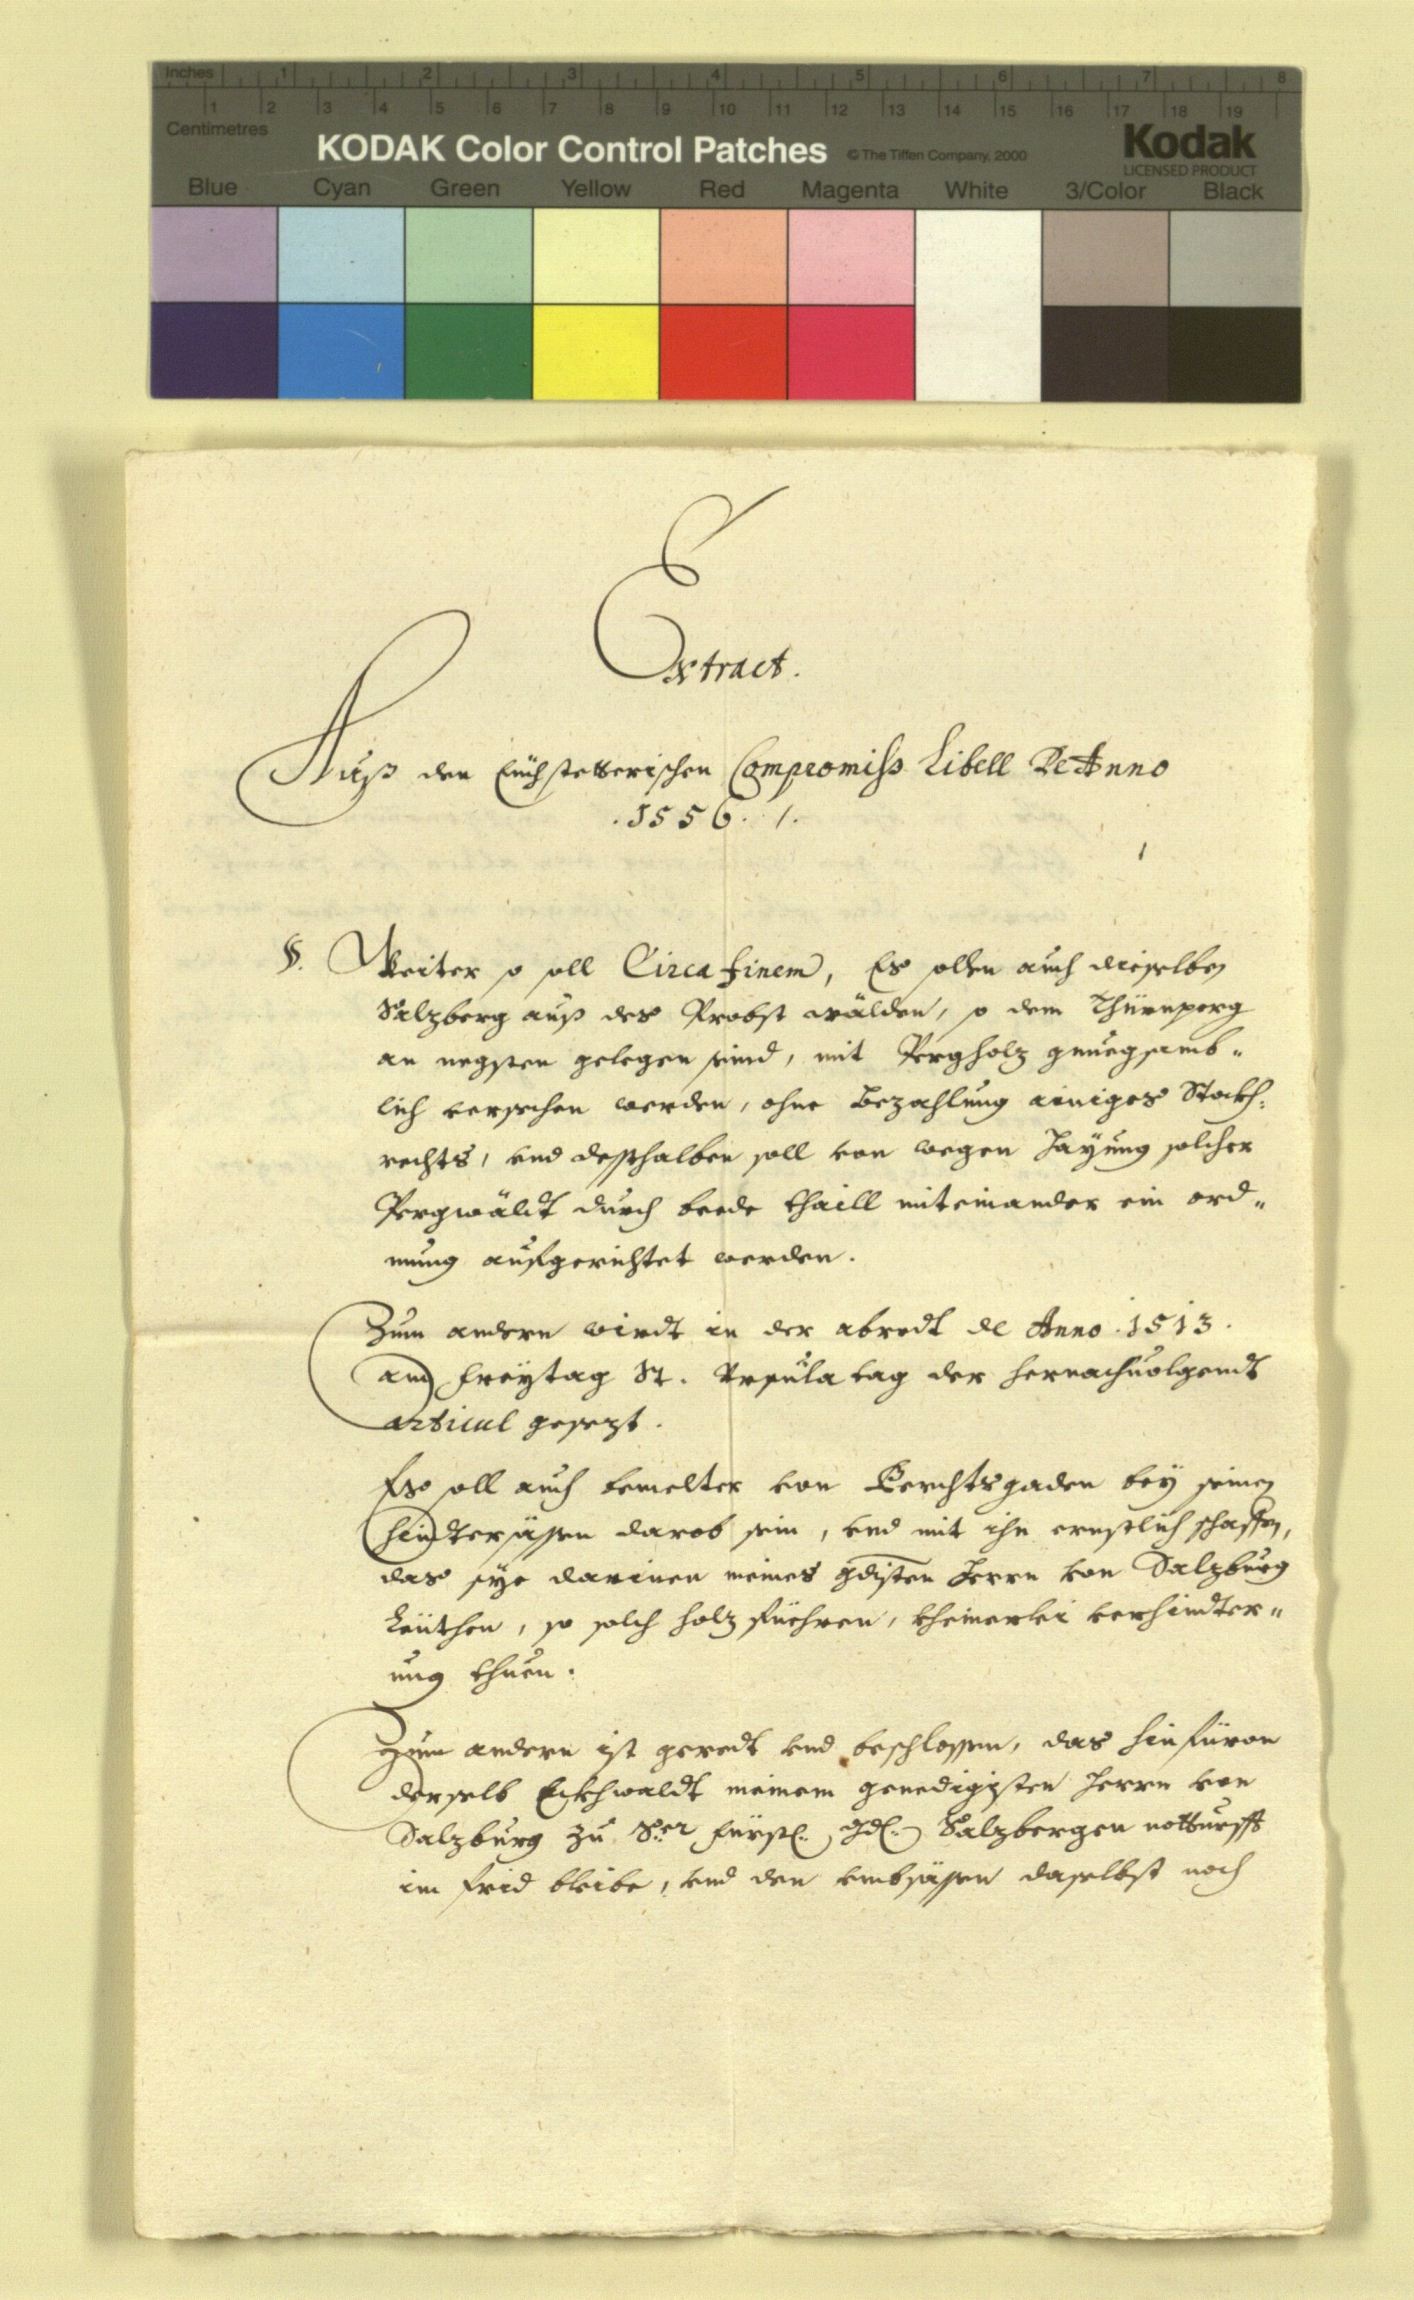 Inches 1 2 3 4 5 6 7 8
1 2 3 4 5 6 7 8 9 10 11 12 13 14 15 16 17 18 19
Centimetres
KODAK Color Control Patches © The Tiffen Company, 2000 Kodak
LICENSED PRODUCT
Blue Cyan Green Yellow Red Magenta White 3/Color Black
Extract.
Auß den Eüchstetterischen Compromiss Libell De Anno
.1556. /.
§. Weiter so soll Circa finem, Es sollen auch dieselben
Salzberg auß des Probst wälden, so dem Thürnperg
an negsten gelegen sind, mit Pergholz genuegsamb„
lich versechen werden, ohne Bezahlung ainiges Stockh:
rechts, vnd desshalben soll von wegen Hayung solcher
Pergwäldt durch beede thaill miteinander ein ord„
nung aufgerichtet werden.
Zum andern wirdt in der abredt de Anno .1513.
am Freÿtag St. Vrsula tag der hernachuolgendt
articul gesezt.
Es soll auch bemelter von Berchtsgaden beÿ seinen
hindtersässen darob sein, vnd mit ihn ernstlich schaffen,
das sÿe darinen meines gdisten Herrn von Salzburg
Leüthen, so solch holz füehren, kheinerlei verhindter„
ung thuen.
Zum andern ist geredt vnd beschlossen, das hinfüron
derselb Eckhwaldt meinem genedigisten Herrn von
Salzburg zu Sr. Fürstl. Gdl. Salzbergen notturfft
im frid bleibe, vnd den vmbsässen daselbst noch